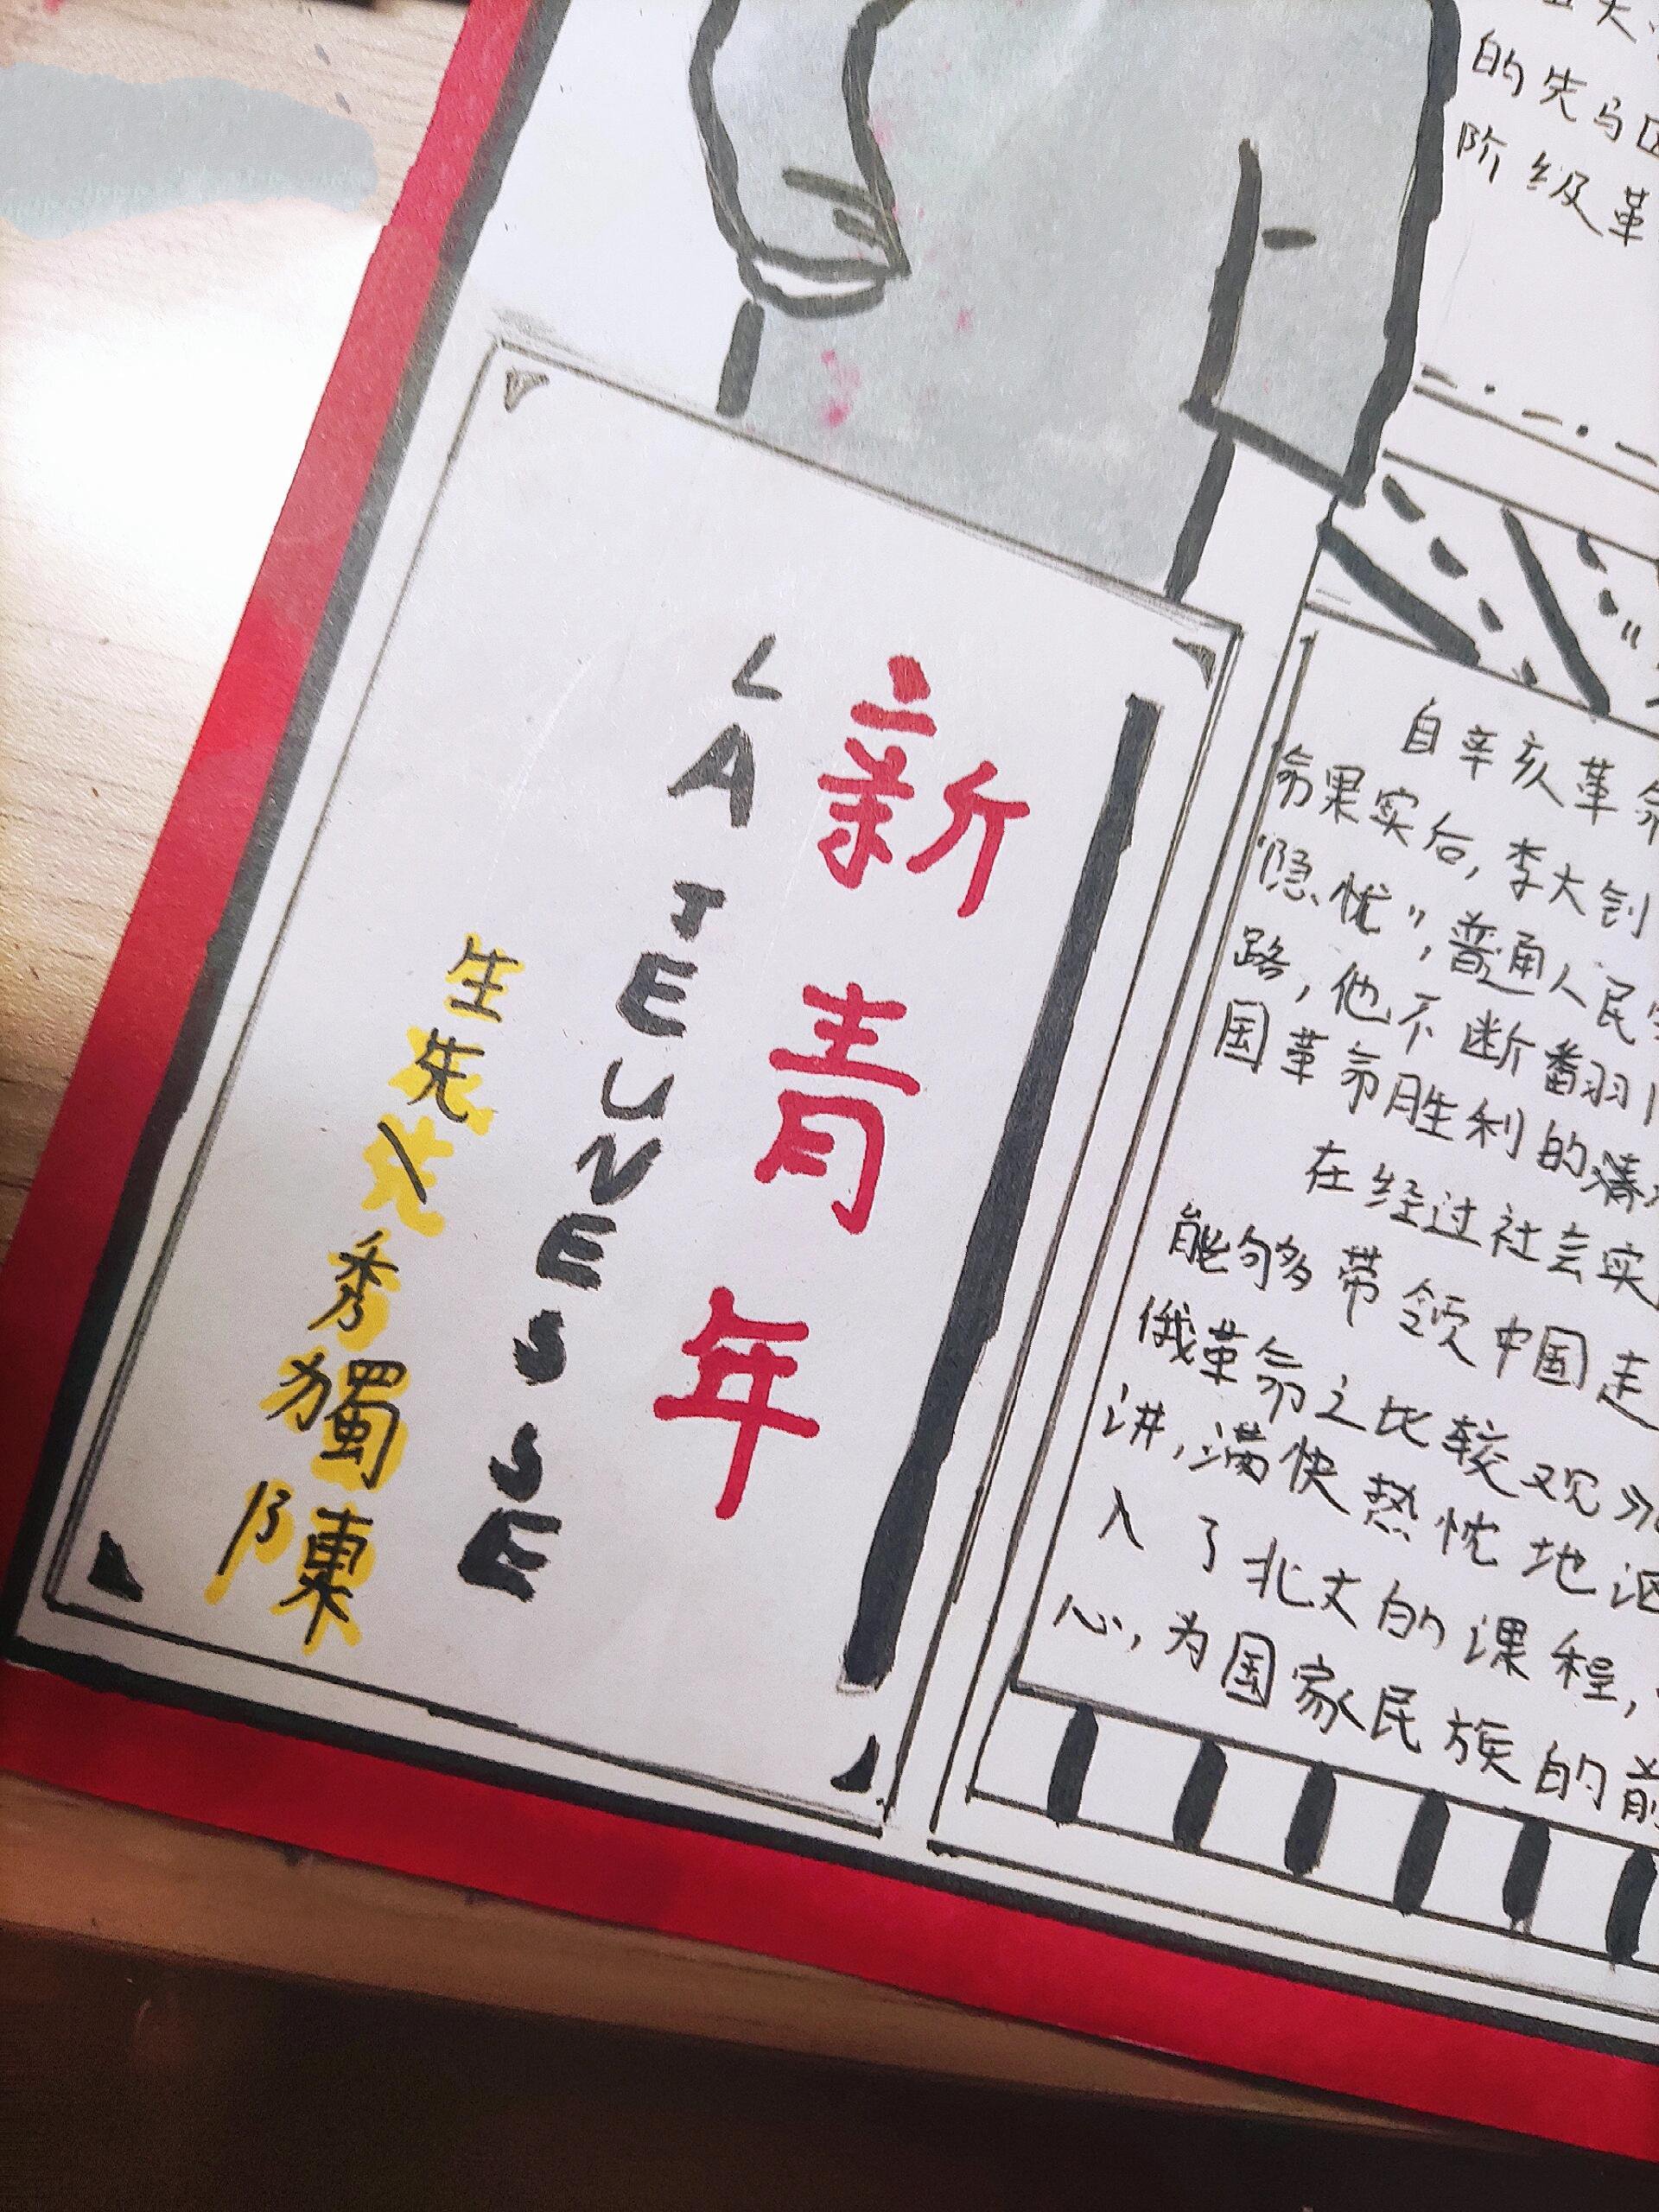 的先马
阶级革
新青年
LA JEUNESSE
生先\秀獨陳
自辛亥革命
命果实后,李大钊
“隐忧”,普通人民
路,他不断翻
国革命胜利的清
在经过社会实
能够带领中国走
俄革命之比较观》
讲,满怀热忱地
入了北大的课程,
心,为国家民族的前